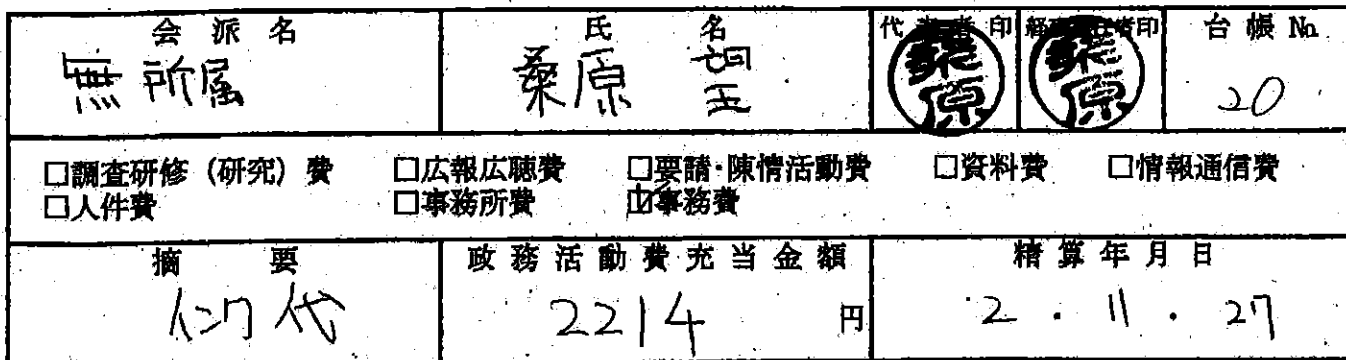 会派名 氏名 代表者印 経理責任者印 台帳№
無所属 桒原 望 桒原 桒原 20
□調査研修(研究)費 □広報広聴費 □要請・陳情活動費 □資料費 □情報通信費
□人件費 □事務所費 ☑事務費
摘要 政務活動費充当金額 精算年月日
インク代 2214円 2.11.27